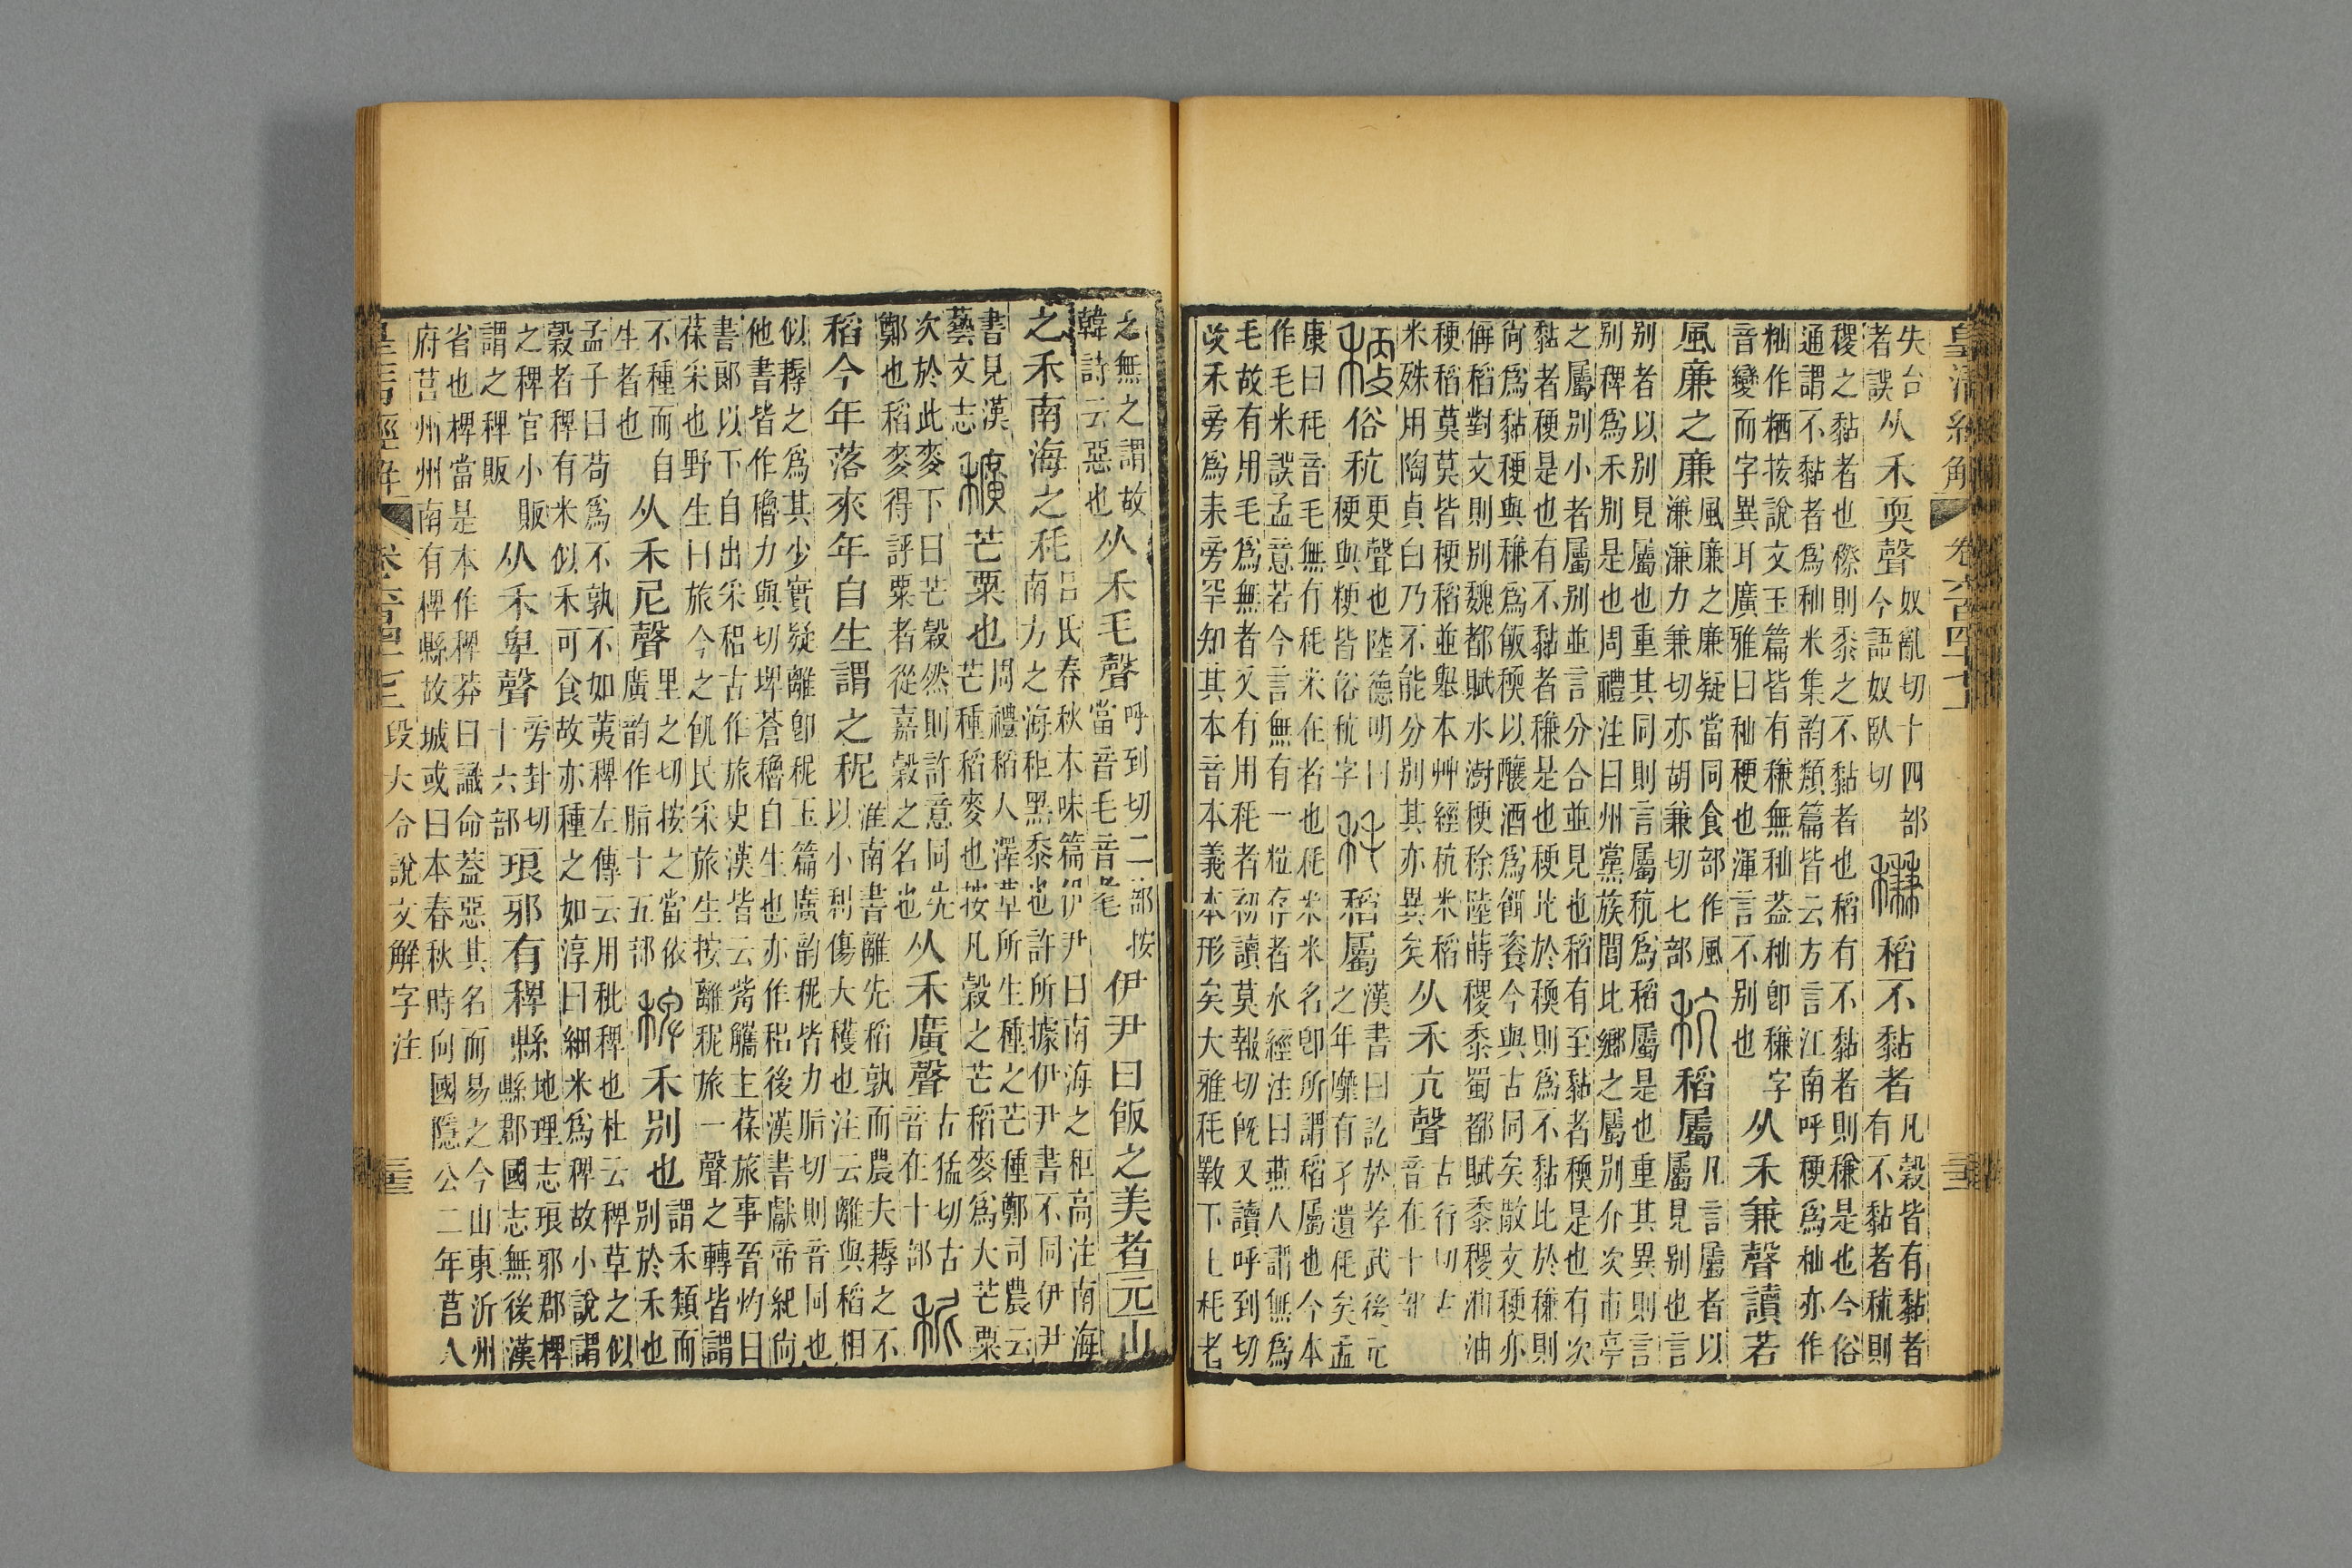 皇清經解　卷六百四十七　三三
失合
者誤
从禾耎聲
奴亂切十四部
今語奴臥切
稬稻不黏者
凡穀皆有黏者
有不黏者秫則
稷之黏者也穄則黍之不黏者也稻有不黏者則稴是也今俗
通謂不黏者為秈米集韵類篇皆云方言江南呼稉為秈亦作
籼作粞按說文玉篇皆有稴無秈蓋秈卽稴字
音變而字異耳廣雅曰秈稉也渾言不別也
从禾兼聲讀若
風廉之廉
風廉之廉疑當同食部作風
溓溓力兼切亦胡兼切七部
秔稻屬
凡言屬者以
屬見別也言
別者以別見屬也重其同則言屬秔為稻屬是也重其異則言
別稗為禾別是也周禮注曰州黨族閭比鄉之屬別介次市亭
之屬別小者屬別並言分合並見也稻有至黏者稬是也有次
黏者稉是也有不黏者稴是也稉比於稬則為不黏比於稴則
尚為黏稉與稴為飯稬以釀酒為餌餈今與古同矣散文稉亦
偁稻對文則別魏都賦水澍稉稌陸蒔稷黍蜀都賦黍稷油油
稉稻莫莫皆稉稻並舉本艸經秔米稻
米殊用陶貞白乃不能分別其亦異矣
从禾亢聲
古行切古
音在十部
稉俗秔
更聲也陸德明曰
稉與粳皆俗秔字
秏稻屬
漢書曰訖於孝武後元
之年靡有孑遺秏矣孟
康曰秏音毛無有秏米在者也秏米米名卽所謂稻屬也今本
作毛米誤孟意若今言無有一粒存者水經注曰燕人謂無為
毛故有用毛為無者又有用秏者初讀莫報切旣又讀呼到切
改禾旁為耒旁罕知其本音本義本形矣大雅秏斁下土秏者
之無之謂故
韓詩云惡也
从禾毛聲
呼到切二部按
當音毛音毣
伊尹曰飯之美者元山
之禾南海之秏
呂氏春秋本味篇伊尹曰南海之秬高注南海
南方之海秬黑黍也許所據伊尹書不同伊尹
書見漢
藝文志
穬芒粟也
周禮稻人澤草所生種之芒種鄭司農云
芒種稻麥也按凡穀之芒稻麥為大芒粟
次於此麥下曰芒穀然則許意同先
鄭也稻麥得評粟者從嘉穀之名也
从禾廣聲
古猛切古
音在十部
秜
稻今年落來年自生謂之秜
淮南書離先稻孰而農夫耨之不
以小利傷大穫也注云離與稻相
似耨之為其少實疑離卽秜玉篇廣韵秜皆力脂切則音同也
他書皆作穭力與切埤蒼穭自生也亦作稆後漢書獻帝紀尚
書郎以下自出采稆古作旅史漢皆云觜觿主葆旅事晉灼曰
葆采也野生曰旅今之飢民采旅生按離秜旅一聲之轉皆謂
不種而自
生者也
从禾尼聲
里之切按之當依
廣韵作脂十五部
稗禾別也
謂禾類而
別於禾也
孟子曰苟為不孰不如荑稗左傳云用秕稗也杜云稗草之似
穀者稗有米似禾可食故亦種之如淳曰細米為稗故小說謂
之稗官小販
謂之稗販
从禾卑聲
旁卦切
十六部
琅邪有稗縣
地理志琅邪郡椑
縣郡國志無後漢
省也椑當是本作稗莽曰識命葢惡其名而易之今山東沂州
府莒州州南有椑縣故城或曰本春秋時向國隱公二年莒人
皇清經解　卷六百四十七　段大令說文解字注　三三